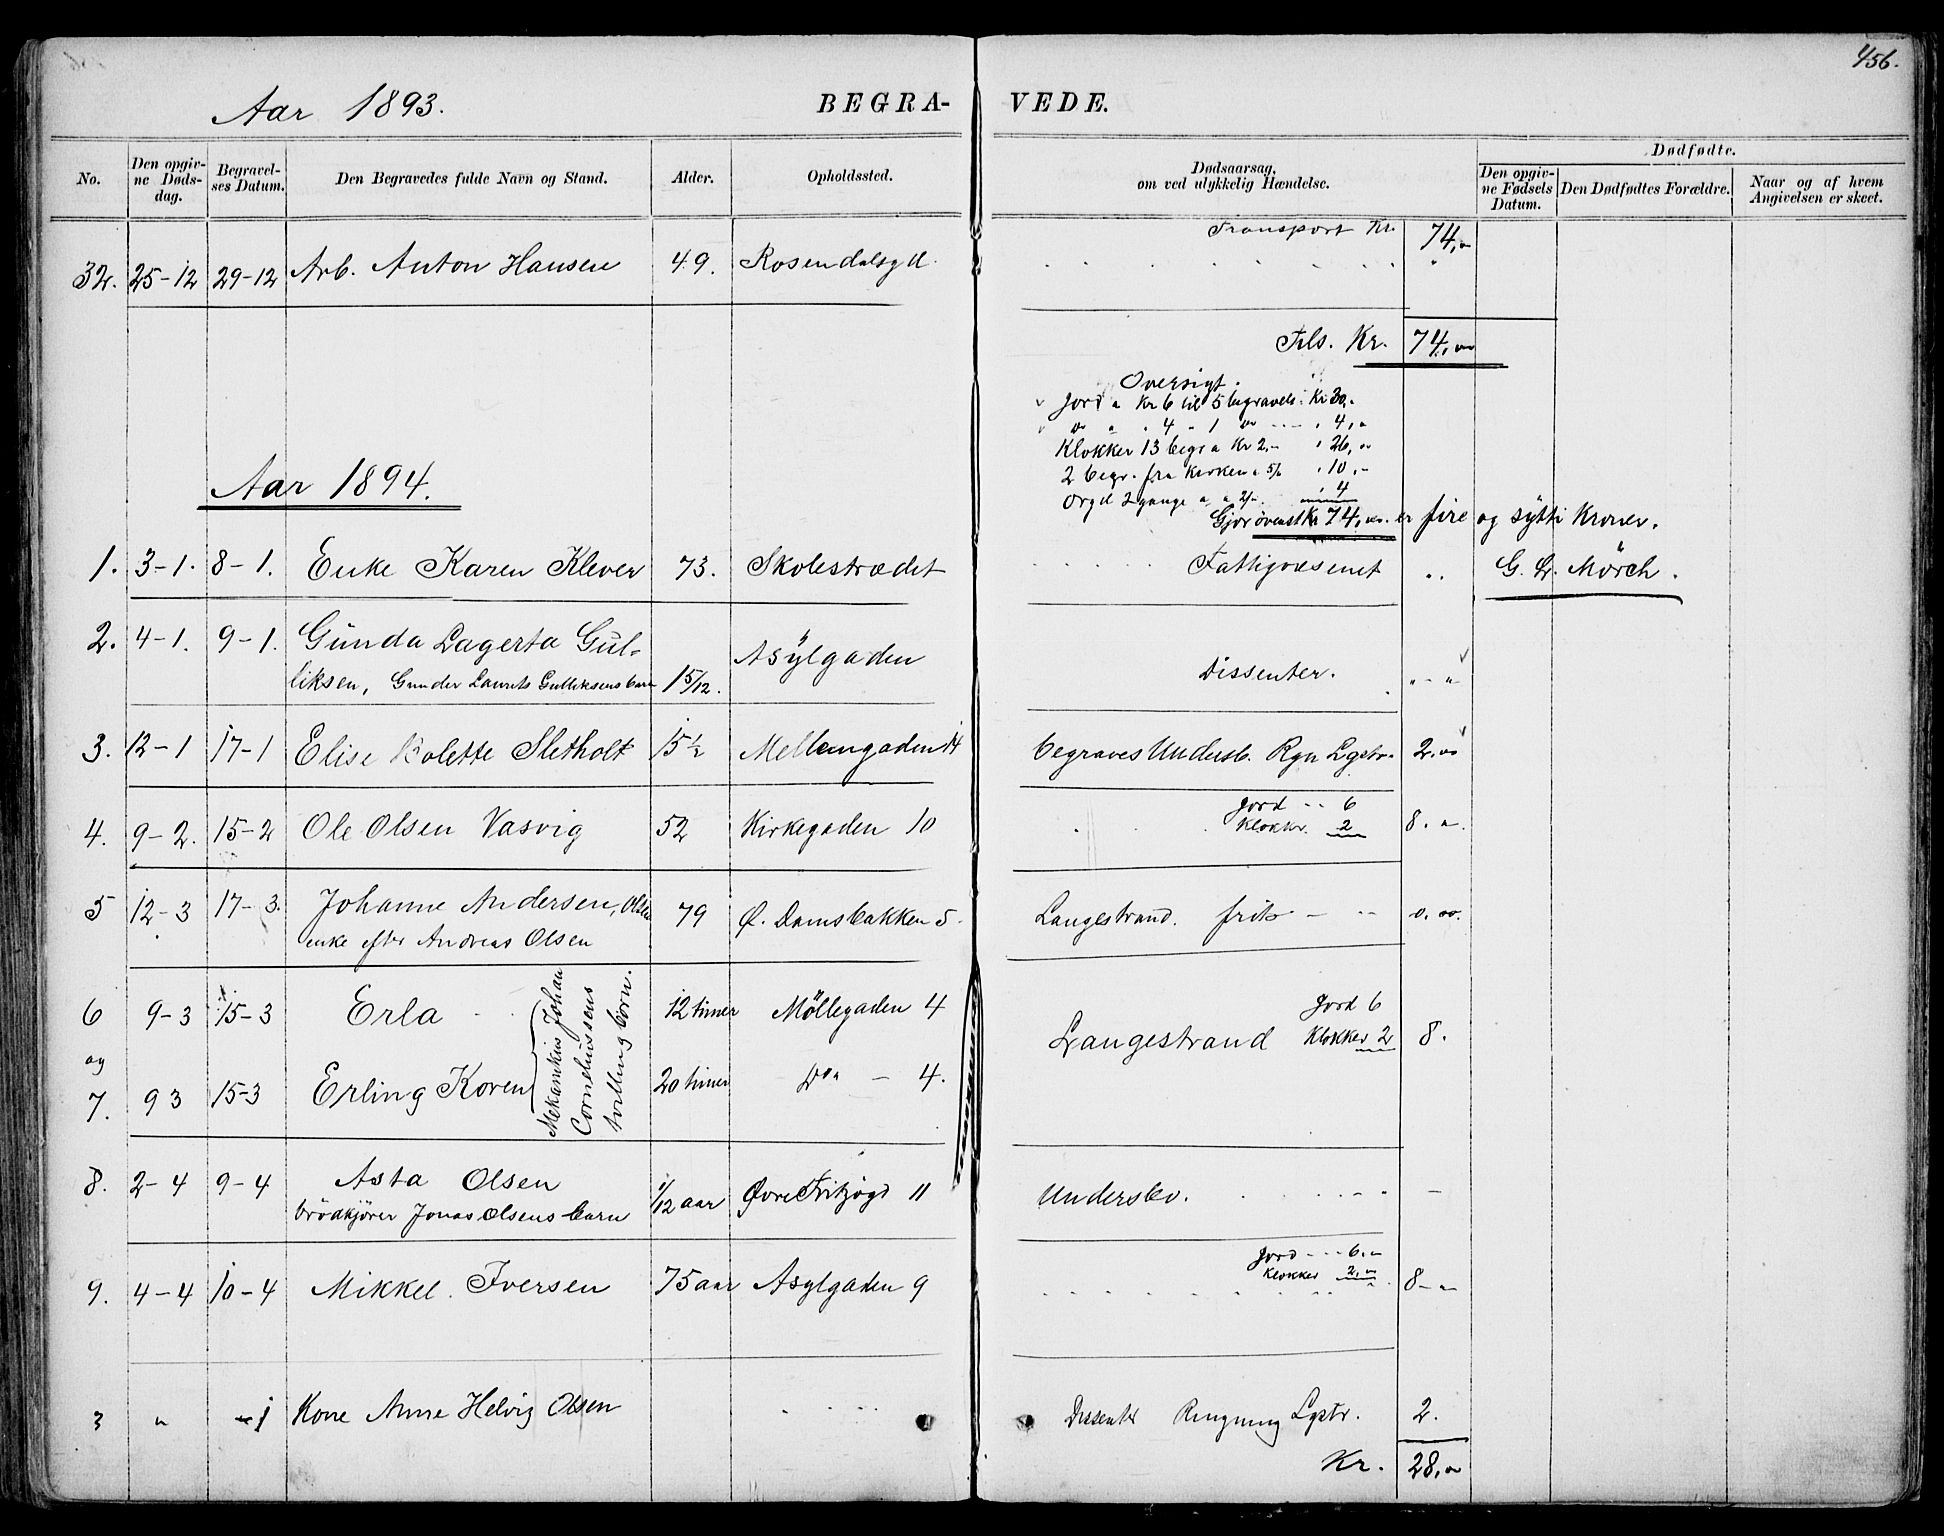 456.
Aar 1893.
BEGRA- VEDE.
No.
Den opgivne Dødsdag.
Begravelses Datum.
Den Begravedes fulde Navn og Stand.
Alder.
Opholdssted.
Dødsaarsag, om ved ulykkelig Hændelse.
Dødfødte.
Den opgivne Fødsels Datum.
Den Dødfødtes Forældre.
Naar og af hvem Angivelsen er skeet.
Transport Kr. 74,"
32. 25-12 29-12 Arb. Anton Hansen 49. Rosendalsgd.
Tils. Kr. 74,"
Oversigt.
Jord a Kr 6 til 5 begravels. Kr 30,-
do a " 4 " 1 do " 4,"
Klokker 13 begr a Kr 2,- " 26,"
2 begr. fra Kirken a 5/- " 10,-
Orgel 2 gange a " 2/- " 4
Gjør Kr 74, er fire og sytti Kroner.
Aar 1894.
1. 3-1. 8-1. Enke Karen Klever 73. Skolestrædet Fattigvæsenet " G. L. Mörch.
2. 4-1. 9-1. Gunda Lagerta Gul-
liksen, Gunder Laurits Gulliksens barn 15/12. Asylgaden Dissenter. "-"
3. 12-1 17-1 Elise Kolette Sletholt 15½ Mellemgaden 14 begraves Undersb. Rgn Lgstr. 2."
4. 9-2. 15-2 Ole Olsen Vasvig 52 Kirkegaden 10 Jord " 6
Klokkr. 2 8."
5 12-3 17-3. Johanne Andersen, Olsen 79 Ø. Damsbakken 5. Langestrand. frit - " 0.00.
enke efter Andreas Olsen
6 9-3 15-3 Erla 12 timer Möllegaden 4 Jord 6
Langestrand Klokker 2 8.
og
7. 9 3 15-3 Erling Koren 20 timer Do - 4.
Mekanikus Johan
Corneliussens
tvillingbörn.
8. 2-4 9-4 Asta Olsen 1/12 aar Øvre Fritzögd 11 Undersbo. -
brödkjörer Jonas Olsens barn
9. 4-4 10-4 Mikkel Iversen 75 aar Asylgaden 9 Jord 6."
Klokker 2." 8-"
3 " -1 Kone Anne Helvig Olsen Dissenter Ringning Lgstr. 2.
Kr. 28,"